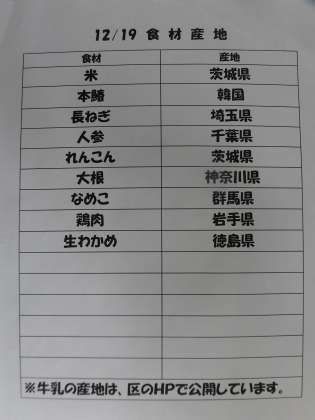 12/19 食材産地
食材 産地
米 茨城県
本鰆 韓国
長ねぎ 埼玉県
人参 千葉県
れんこん 茨城県
大根 神奈川県
なめこ 群馬県
鶏肉 岩手県
生わかめ 徳島県
※牛乳の産地は、区のHPで公開しています。